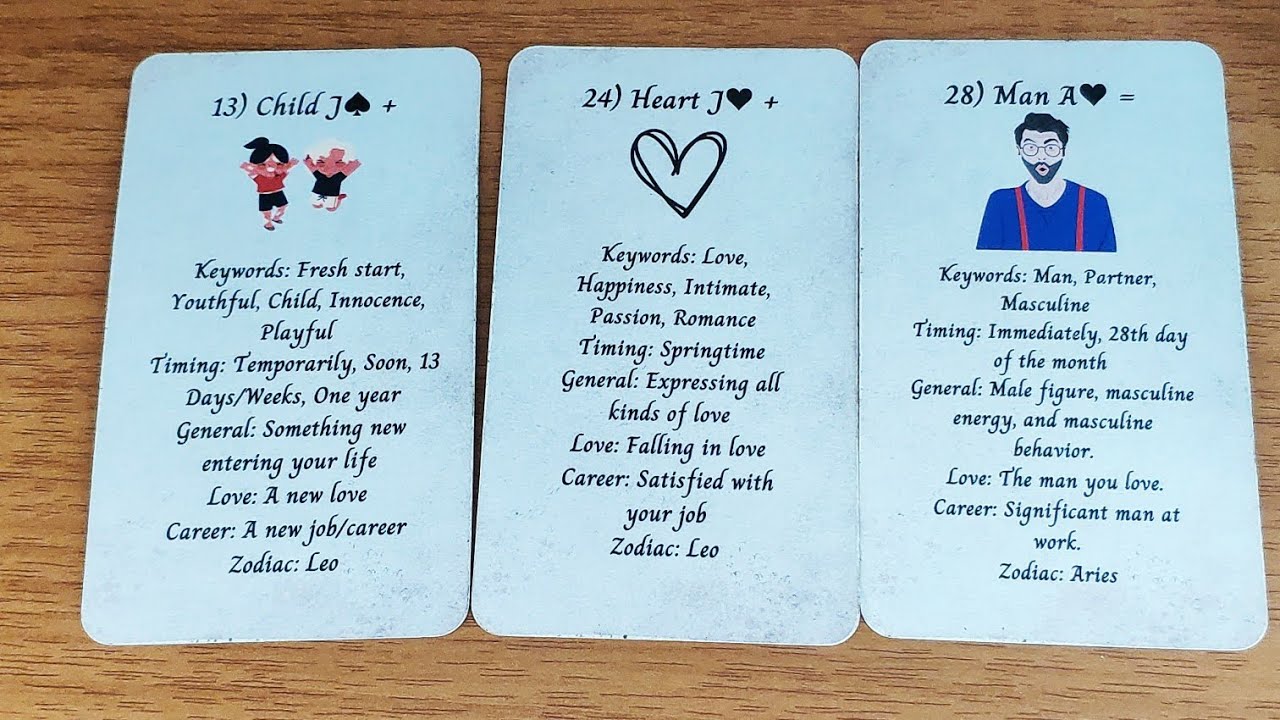 13) Child J♠ +
Keywords: Fresh start,
Youthful, Child, Innocence,
Playful
Timing: Temporarily, Soon, 13
Days/Weeks, One year
General: Something new
entering your life
Love: A new love
Career: A new job/career
Zodiac: Leo
24) Heart J♥ +
Keywords: Love,
Happiness, Intimate,
Passion, Romance
Timing: Springtime
General: Expressing all
kinds of love
Love: Falling in love
Career: Satisfied with
your job
Zodiac: Leo
28) Man A♥ =
Keywords: Man, Partner,
Masculine
Timing: Immediately, 28th day
of the month
General: Male figure, masculine
energy, and masculine
behavior.
Love: The man you love.
Career: Significant man at
work.
Zodiac: Aries